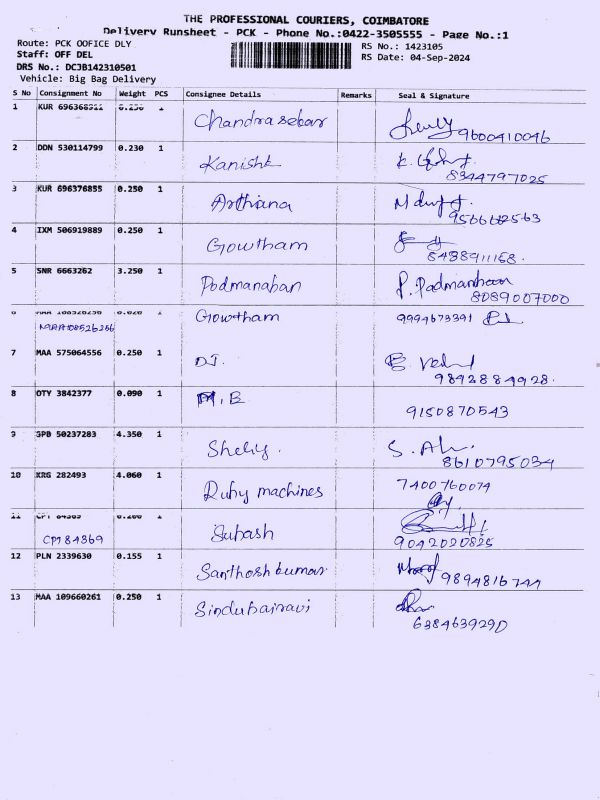 THE PROFESSIONAL COURIERS, COIMBATORE
Delivery Runsheet - PCK - Phone No.:0422-3505555 - Page No.:1
Route: PCK OOFICE DLY
RS No.: 1423105
Staff: OFF DEL
RS Date: 04-Sep-2024
DRS No.: DCJB142310501
Vehicle: Big Bag Delivery
S No Consignment No Weight PCS Consignee Details Remarks Seal & Signature
1 KUR 1 Chandrasebar
9600410046
2 DDN 530114799 0.230 1 Kanishk
8344797025
3 KUR 696376855 0.250 1 Arthiana
4 IXM 506919889 0.250 1 Gowtham
8438911168.
5 SNR 6663262 3.250 1 Podmanaban P. Padmanaban
8089007000
6 MAA 1 Gowtham 9994673391
MAA108526256
7 MAA 575064556 0.250 1 D.J.
9842884928.
8 OTY 3842377 0.090 1 M.B
9150870543
9 GPB 50237283 4.350 1 Sheliy. S. Ah.
8610795034
10 KRG 282493 4.060 1 Ruby machines 7400760074
11 CPT 84369 1 Subash
CPT 84369
9042020825
12 PLN 2339630 0.155 1 Santhosh kumar
9894816744
13 MAA 109660261 0.250 1 Sindubairavi
6384639290